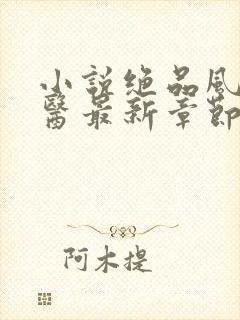 小説绝品風
醫最新章節
阿木提